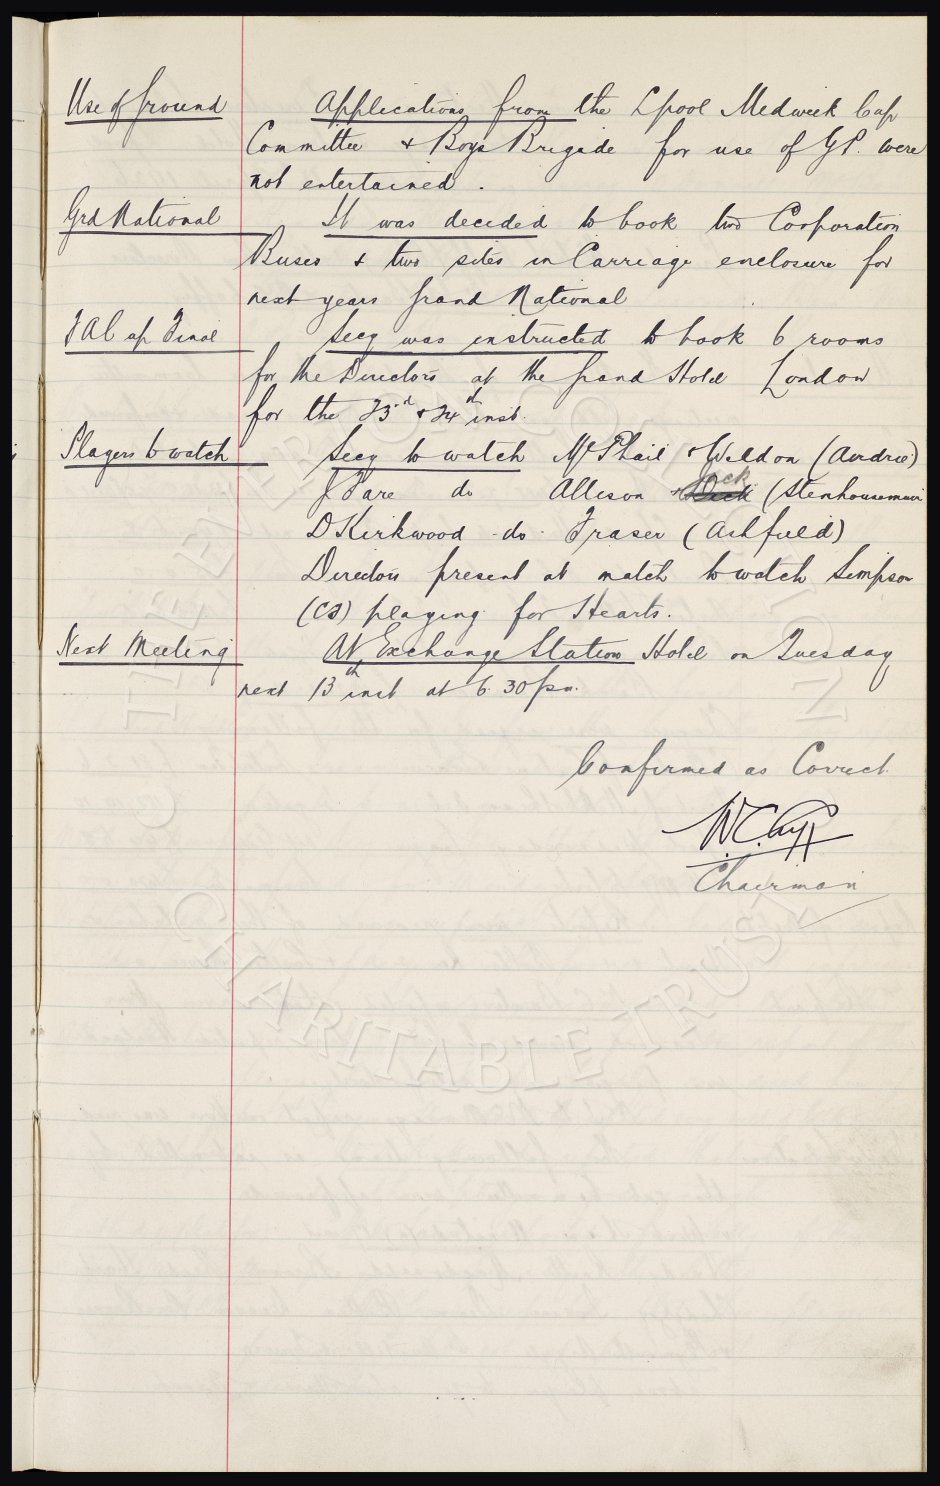 Use of Ground
Applications from the Lpool Medweek Cup
Committee & Boys Brigade for use of G.P. were
not entertained.
Grd National
It was decided to book two Corporation
Buses & two sites in Carriage enclosure for
next years Grand National
F A Cup Final
Secy was instructed to book 6 rooms
for the Directors at the Grand Hotel London
for the 23rd & 24th inst.
Players to watch
Secy to watch McPhail & Weldon (Airdrie)
J Pare do Allison & Jeck (Stenhousemuir
D Kirkwood do Fraser (Ashfield)
Directors present at match to watch Simpson
(CS) playing for Hearts.
Next Meeting
At Exchange Station Hotel on Tuesday
next 13th inst at 6.30pm.
Confirmed as Correct.
W.C. Cuff
Chairman
THE EVERTON COLLECTION
CHARITABLE TRUST